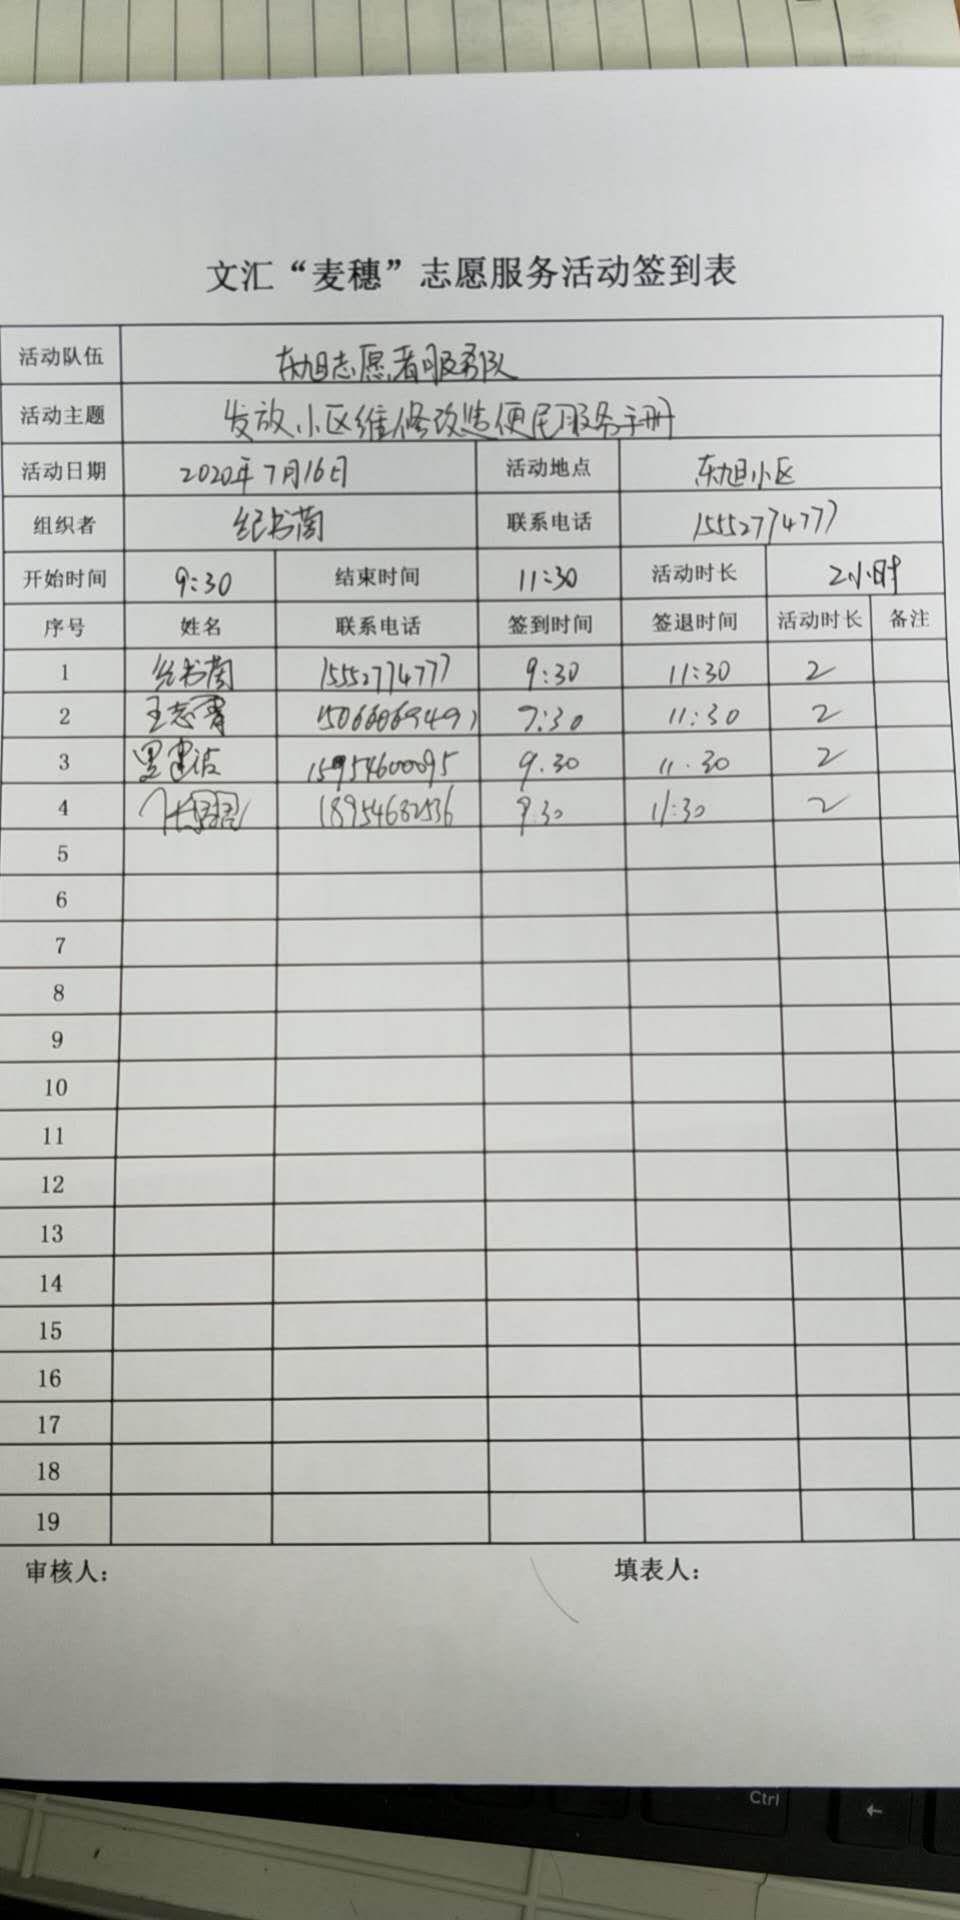 文汇“麦穗”志愿服务活动签到表
活动队伍 东旭志愿者服务队
活动主题 发放小区维修改造便民服务手册
活动日期 2020年7月16日 活动地点 东旭小区
组织者 纪书茵 联系电话 15552774777
开始时间 9:30 结束时间 11:30 活动时长 2小时
序号 姓名 联系电话 签到时间 签退时间 活动时长 备注
1 纪书茵 15552774777 9:30 11:30 2
2 9:30 11:30 2
3 15954600095 9:30 11:30 2
4 18954682536 9:30 11:30 2
5
6
7
8
9
10
11
12
13
14
15
16
17
18
19
审核人： 填表人：
Ctrl
←